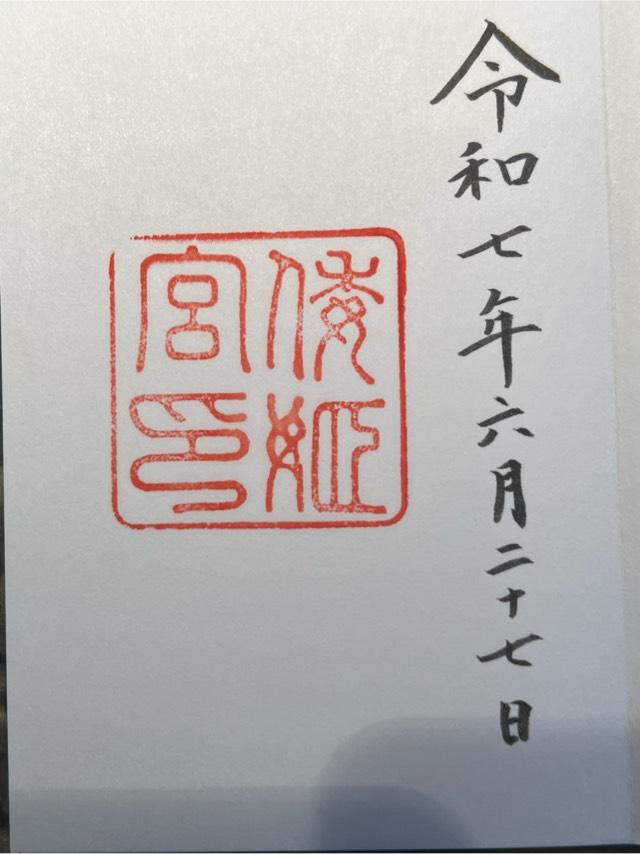 令和七年六月二十七日
倭姫
宮印